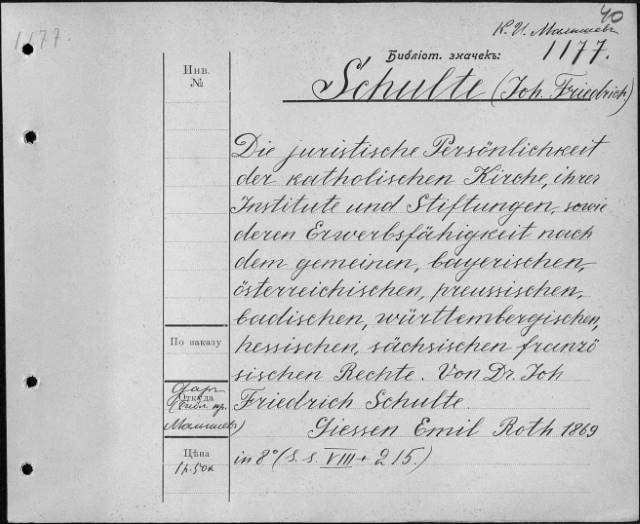 40
1177.
К. И. Малышев
Библіот. значекъ:
1177.
Инв.
№
Schulte (Joh. Friedrich.)
Die juristische Persönlichkeit
der katholischen Kirche, ihrer
Institute und Stiftungen, sowie
deren Erwerbsfähigkeit nach
dem gemeinen, bayerischen,
österreichischen, preussischen,
badischen, württembergischen,
hessischen, sächsischen franzö
sischen Rechte. Von Dr. Joh
Friedrich Schulte.
Giessen Emil Roth 1869
in 8° (S. s. VIII + 215.)
По наказу
Даръ
Откуда
(библ. пр.
Малышев)
Цѣна
1 р. 50 к